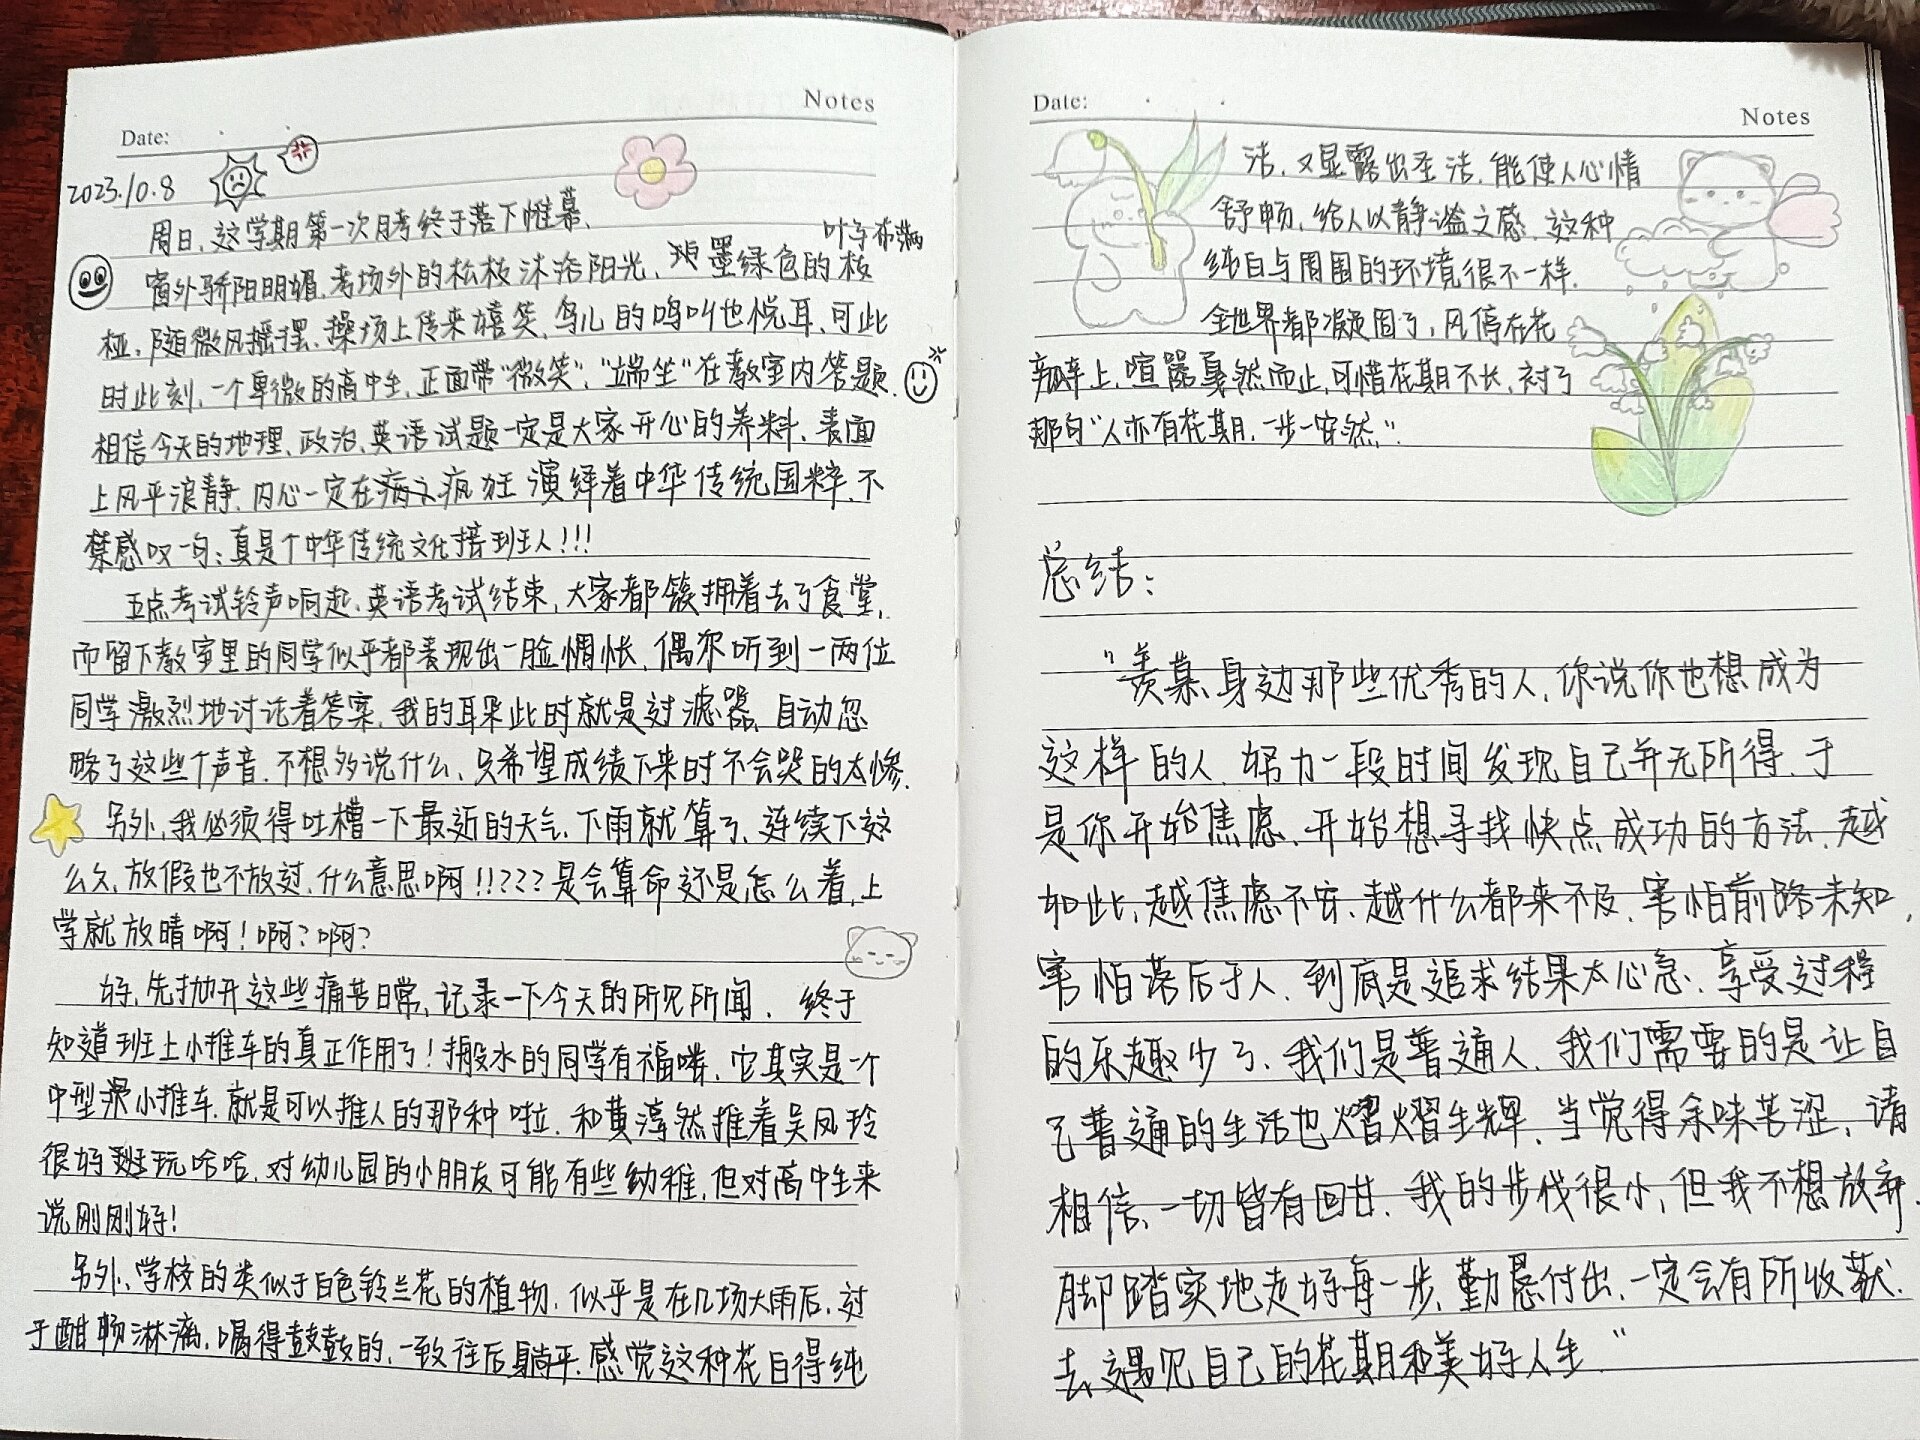 Notes
Date:
2023.10.8
周日，这学期第一次月考终于落下帷幕、
叶子布满
窗外骄阳明媚，考场外的松枝沐浴阳光、墨绿色的枝
桠，随微风摇摆、操场上传来嬉笑、鸟儿的鸣叫也悦耳、可此
时此刻，一个卑微的高中生，正面带“微笑”，“端坐”在教室内答题．
相信今天的地理、政治、英语试题一定是大家开心的养料、表面
上风平浪静，内心一定在疯狂演绎着中华传统国粹，不
禁感叹一句：真是个中华传统文化接班人!!!
五点考试铃声响起、英语考试结束，大家都簇拥着去了食堂，
而留下教室里的同学似乎都表现出一脸惆怅、偶尔听到一两位
同学激烈地讨论着答案，我的耳朵此时就是过滤器，自动忽
略了这些个声音，不想多说什么、只希望成绩下来时不会哭的太惨．
另外，我必须得吐槽一下最近的天气，下雨就算了，连续下这
么久，放假也不放过，什么意思啊!!???是会算命还是怎么着，上
学就放晴啊！啊？啊？
好，先抛开这些痛苦日常，记录一下今天的所见所闻．终于
知道班上小推车的真正作用了！搬水的同学有福喽，它其实是一个
中型滑小推车，就是可以推人的那种啦，和黄淳然推着吴凤玲
很好玩哈哈，对幼儿园的小朋友可能有些幼稚，但对高中生来
说刚刚好！
另外、学校的类似于白色铃兰花的植物，似乎是在几场大雨后，过
于酣畅淋漓，喝得鼓鼓的，一致往后躺平．感觉这种花白得纯
Date:
Notes
洁，又显露出圣洁，能使人心情
舒畅，给人以静谧之感．这种
纯白与周围的环境很不一样．
全世界都凝固了，风停在花
瓣上，喧嚣戛然而止，可惜花期不长，衬了
那句“人亦有花期，一步一安然”．
总结：
“羡慕身边那些优秀的人，你说你也想成为
这样的人，努力一段时间发现自己并无所得，于
是你开始焦虑，开始想寻找快点成功的方法，越
如此，越焦虑不安，越什么都来不及，害怕前路未知，
害怕落后于人，到底是追求结果太心急，享受过程
的乐趣少了，我们是普通人，我们需要的是让自
己普通的生活也熠熠生辉，当觉得余味苦涩，请
相信，一切皆有回甘．我的步伐很小，但我不想放弃．
脚踏实地走好每一步，勤恳付出，一定会有所收获．
去遇见自己的花期和美好人生．”